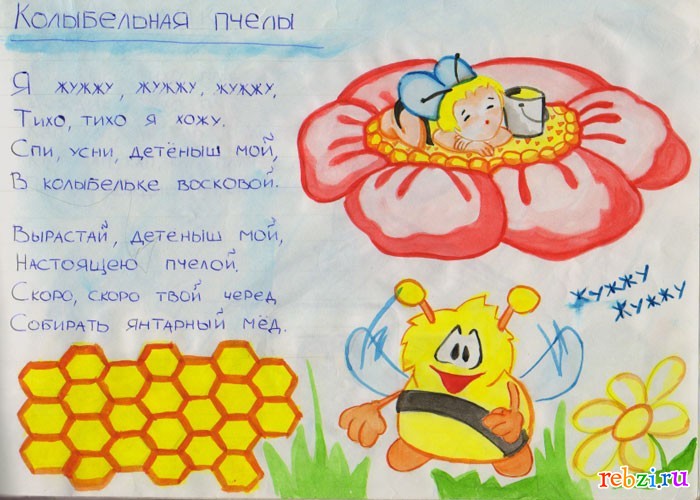 Колыбельная пчелы
Я жужжу, жужжу, жужжу,
Тихо, тихо я хожу.
Спи, усни, детёныш мой,
В колыбельке восковой.
Вырастай, детеныш мой,
Настоящею пчелой.
Скоро, скоро твой черед
Собирать янтарный мёд.
жужжу
жужжу
rebzi.ru